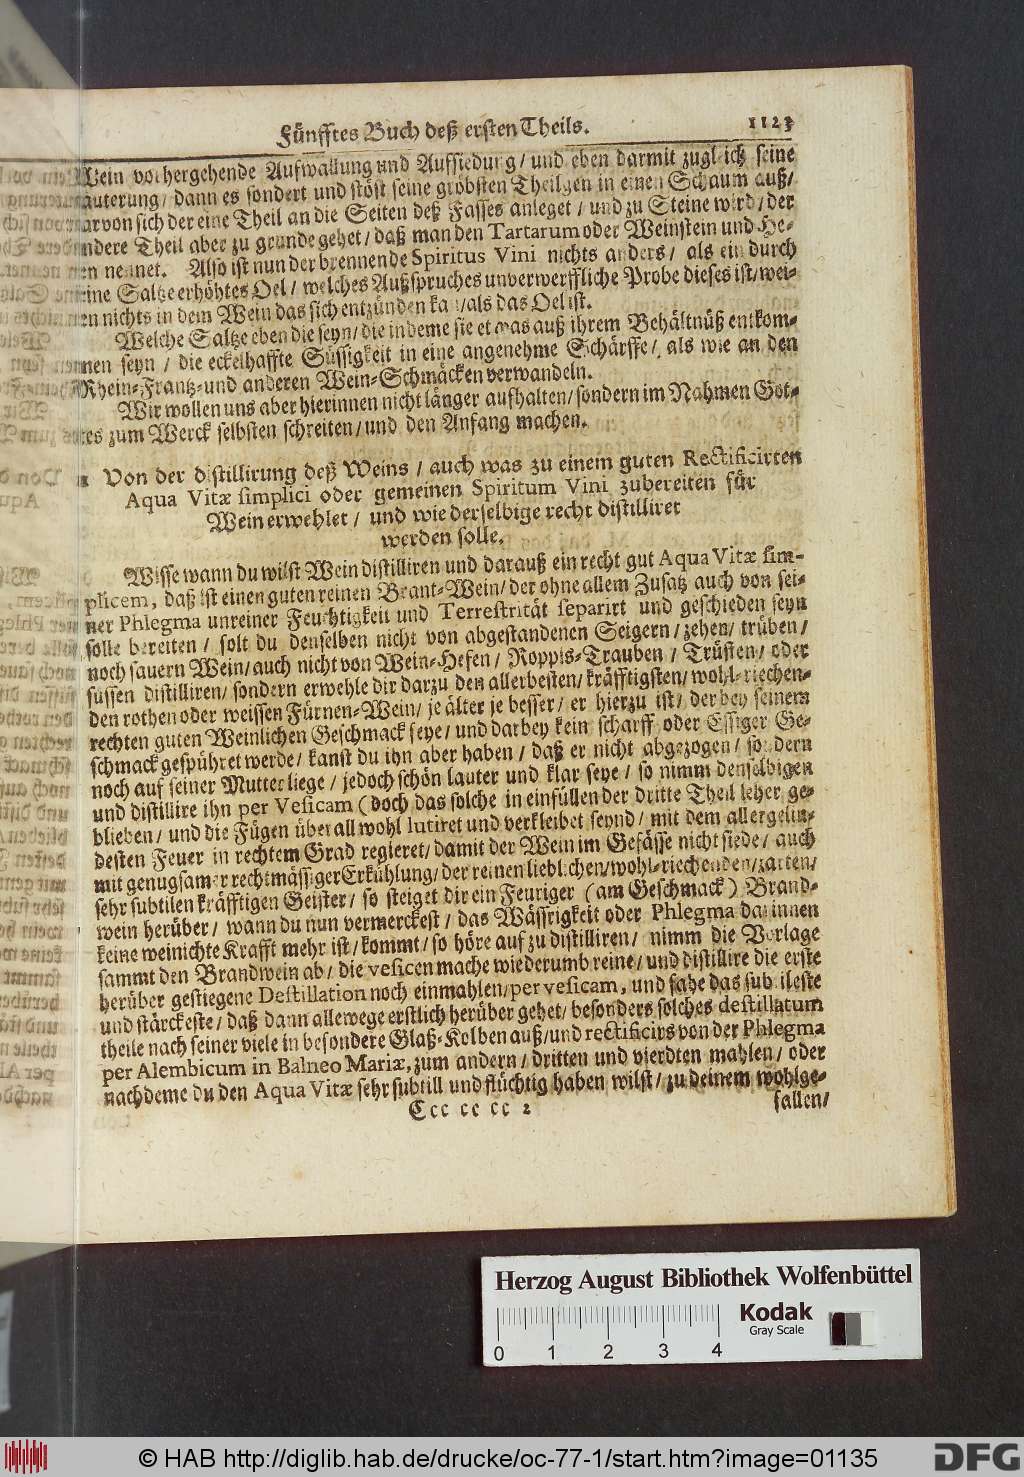 Fünfftes Buch deß ersten Theils. 1123
Wein vorhergehende Aufwallung und Auffsiedung / und eben darmit zugleich seine
äuterung / dann es sondert und stöst seine gröbsten Theilgen in einen Schaum auß /
arvon sich der eine Theil an die Seiten deß Fasses anleget / und zu Steine wird / der
ndere Theil aber zu grunde gehet / daß man den Tartarum oder Weinstein und He-
en nennet. Also ist nun der brennende Spiritus Vini nichts anders / als ein durch
eine Saltze erhöhtes Oel / welches Außspruches unverwerffliche Probe dieses ist / wei-
en nichts in dem Wein das sich entzünden kan / als das Oel ist.
Welche Saltze eben die seyn / die indeme sie etwas auß ihrem Behältnüß entkom-
nen seyn / die eckelhaffte Süssigkeit in eine angenehme Schärffe / als wie an den
Rhein-Frantz-und anderen Wein-Schmäcken verwandeln.
Wir wollen uns aber hierinnen nicht länger aufhalten / sondern im Nahmen Got-
tes zum Werck selbsten schreiten / und den Anfang machen.
Von der distillirung deß Weins / auch was zu einem guten Rectificirten
Aqua Vitæ simplici oder gemeinen Spiritum Vini zubereiten für
Wein erwehlet / und wie derselbige recht distilliret
werden solle.
Wisse wann du wilst Wein distilliren und darauß ein recht gut Aqua Vitæ sim-
plicem, daß ist einen guten reinen Brant-Wein / der ohne allem Zusatz auch von sei-
ner Phlegma unreiner Feuchtigkeit und Terrestrität separirt und geschieden seyn
solle bereiten / solt du denselben nicht von abgestandenen Seigern / zehen / trüben /
noch sauern Wein / auch nicht von Wein-Hefen / Roppis-Trauben / Trüsten / oder
süssen distilliren / sondern erwehle dir darzu den allerbesten / kräfftigsten / wohl-riechen-
den rothen oder weissen Fürnen-Wein / je älter je besser / er hierzu ist / der bey seinem
rechten guten Weinlichen Geschmack seye / und darbey kein scharff oder Essiger Ge-
schmack gespühret werde / kanst du ihn aber haben / daß er nicht abgezogen / sondern
noch auf seiner Mutter liege / jedoch schön lauter und klar seye / so nimm denselbigen
und distillire ihn per Vesicam (doch das solche in einfüllen der dritte Theil leher ge-
blieben / und die Fügen überall wohl lutiret und verkleibet seynd / mit dem allergelin-
desten Feuer in rechtem Grad regieret / damit der Wein im Gefässe nicht siede / auch
mit genugsamer rechtmässiger Erkühlung / der reinen lieblichen / wohl-riechenden / zarten /
sehr subtilen kräfftigen Geister / so steiget dir ein Feuriger (am Geschmack) Brand-
wein herüber / wann du nun vermerckest / das Wässrigkeit oder Phlegma darinnen
keine weinichte Krafft mehr ist / kommt / so höre auf zu distilliren / nimm die Vorlage
sammt den Brandwein ab / die vesicen mache wiederumb reine / und distillire die erste
herüber gestiegene Destillation noch einmahlen / per vesicam, und fahe das subtileste
und stärckeste / daß dann allewege erstlich herüber gehet / besonders solches destillatum
theile nach seiner viele in besondere Glaß-Kolben auß / und rectificirs von der Phlegma
per Alembicum in Balneo Mariæ, zum andern / dritten und vierdten mahlen / oder
nachdeme du den Aqua Vitæ sehr subtill und flüchtig haben wilst / zu deinem wohlge-
Ccc cc cc 2 fallen /
Herzog August Bibliothek Wolfenbüttel
Kodak
Gray Scale
0 1 2 3 4
© HAB http://diglib.hab.de/drucke/oc-77-1/start.htm?image=01135
DFG